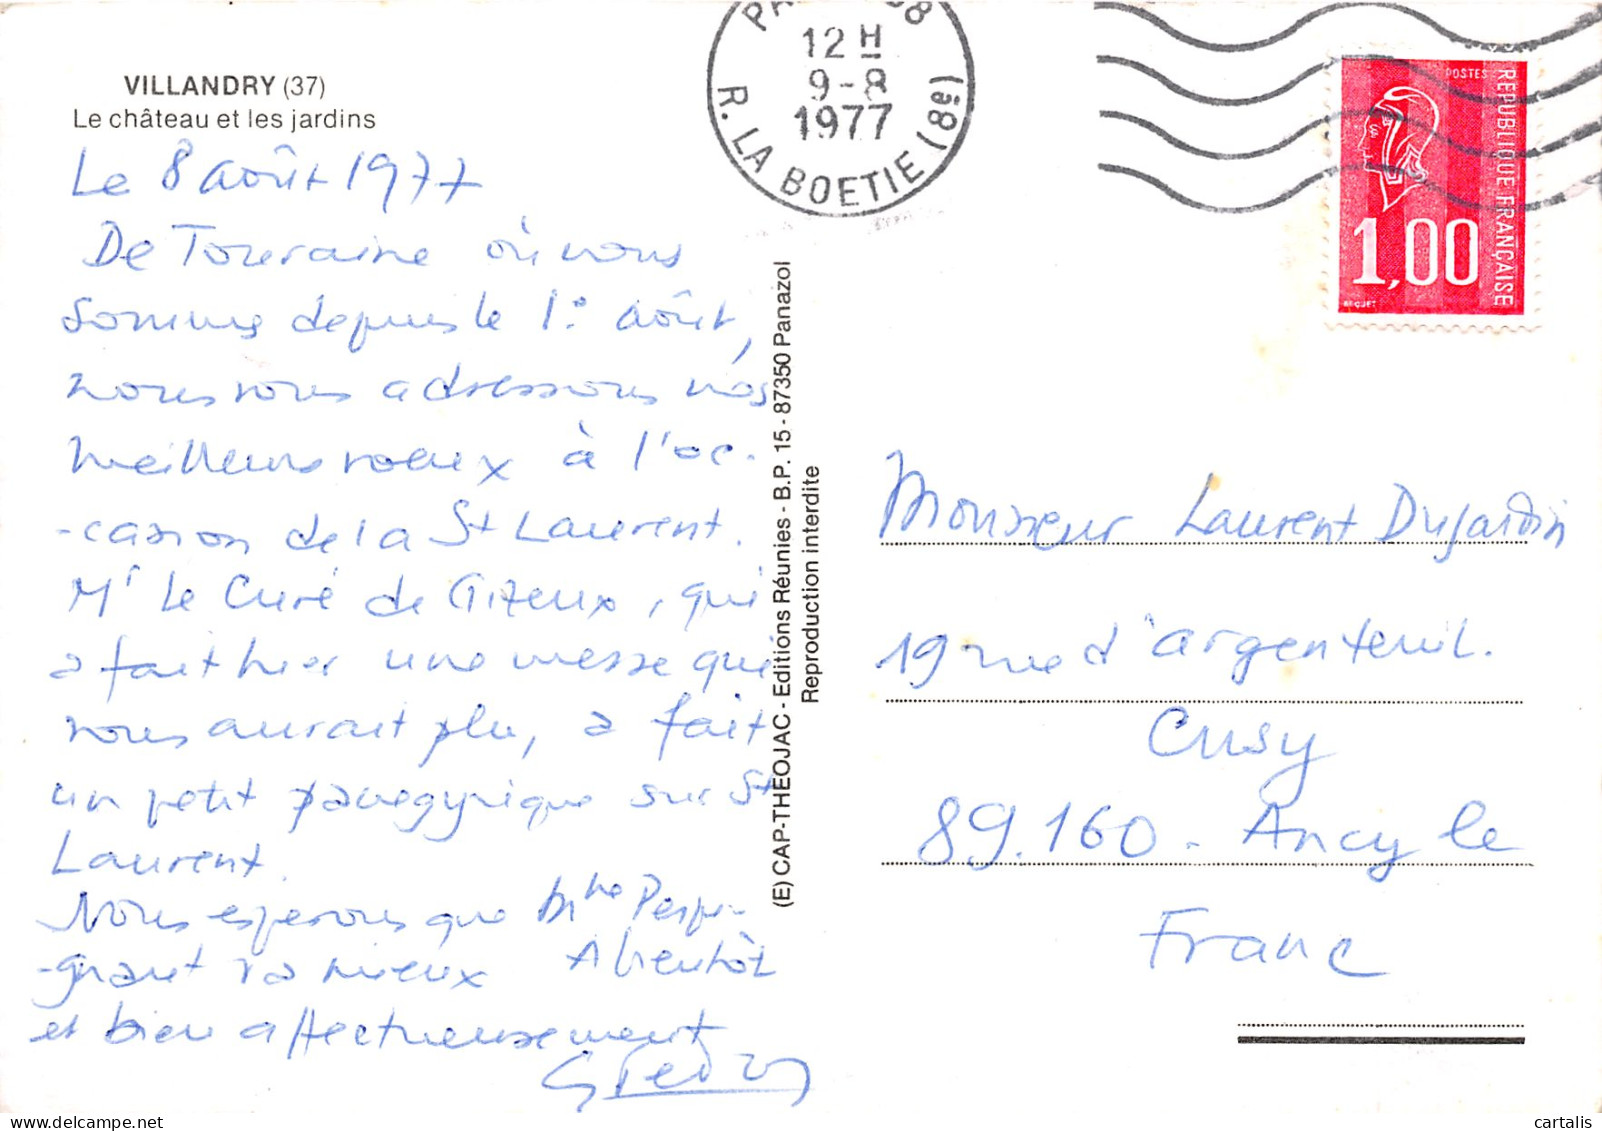 VILLANDRY (37)
Le château et les jardins
Le 8 août 1977
De Touraine où nous
sommes depuis le 1° août,
nous vous adressons nos
meilleurs voeux à l'oc-
-casion de la St Laurent.
Mr le Curé de Gizeux, qui
a fait hier une messe qui
vous aurait plu, a fait
un petit panégyrique sur St
Laurent.
Nous espérons que Mme Perpi-
-gnant va mieux A bientôt
et bien affectueusement
12 H
9-8
1977
R. LA BOETIE (8e)
POSTES
REPUBLIQUE FRANÇAISE
1,00
BEQUET
(E) CAP-THEOJAC - Editions Réunies - B.P. 15 - 87350 Panazol
Reproduction interdite
Monsieur Laurent Dujardin
19 rue d'argenteuil.
Cusy
89.160 - Ancy le
Franc
cartalis